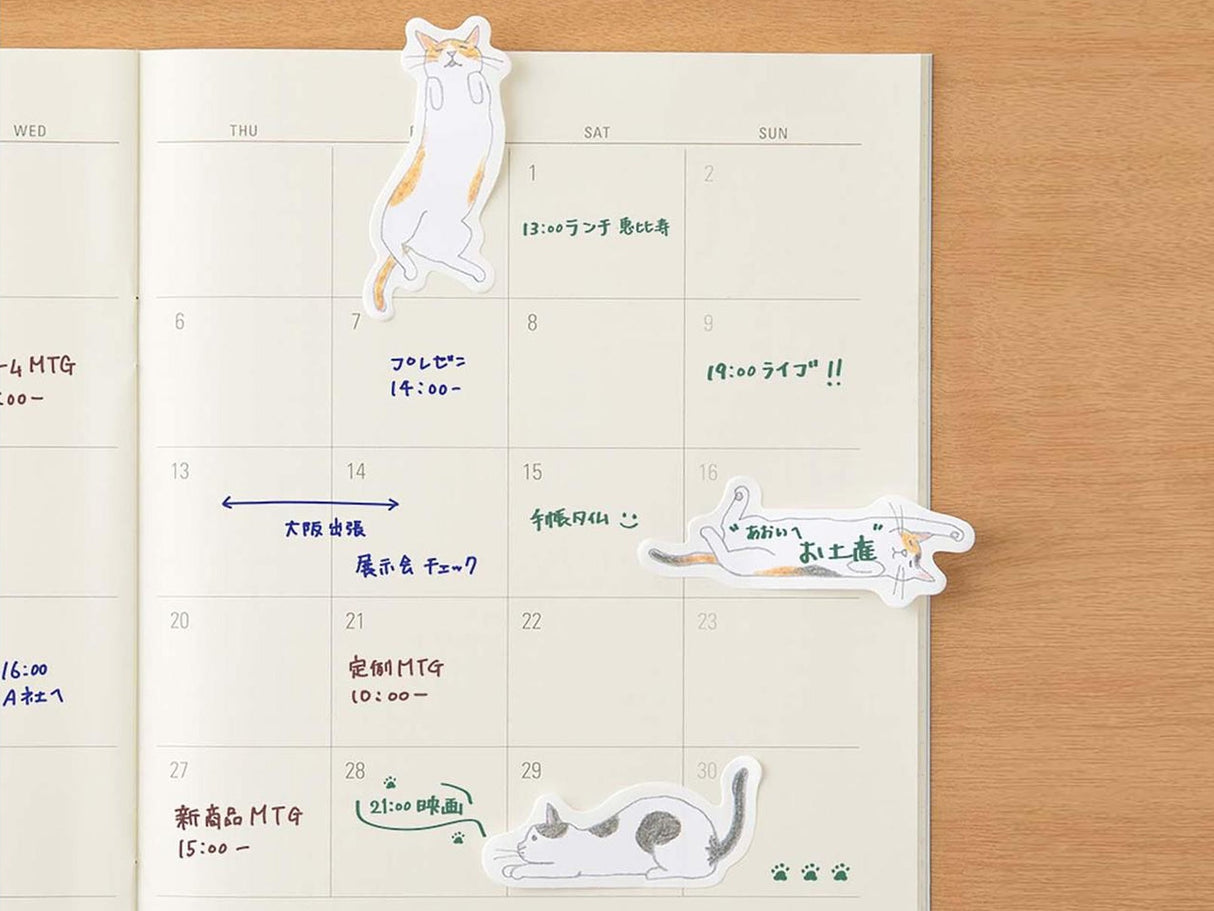 WED THU F SAT SUN
1 2
13:00ランチ 恵比寿
6 7 8 9
ーム MTG
:00ー
プレゼン
14:00-
19:00 ライブ!!
13 14 15 16
大阪出張
展示会 チェック
手帳タイム
"あおいへ
お土産"
20 21 22 23
16:00
A社へ
定例MTG
10:00ー
27 28 29 30
新商品MTG
15:00ー
21:00 映画